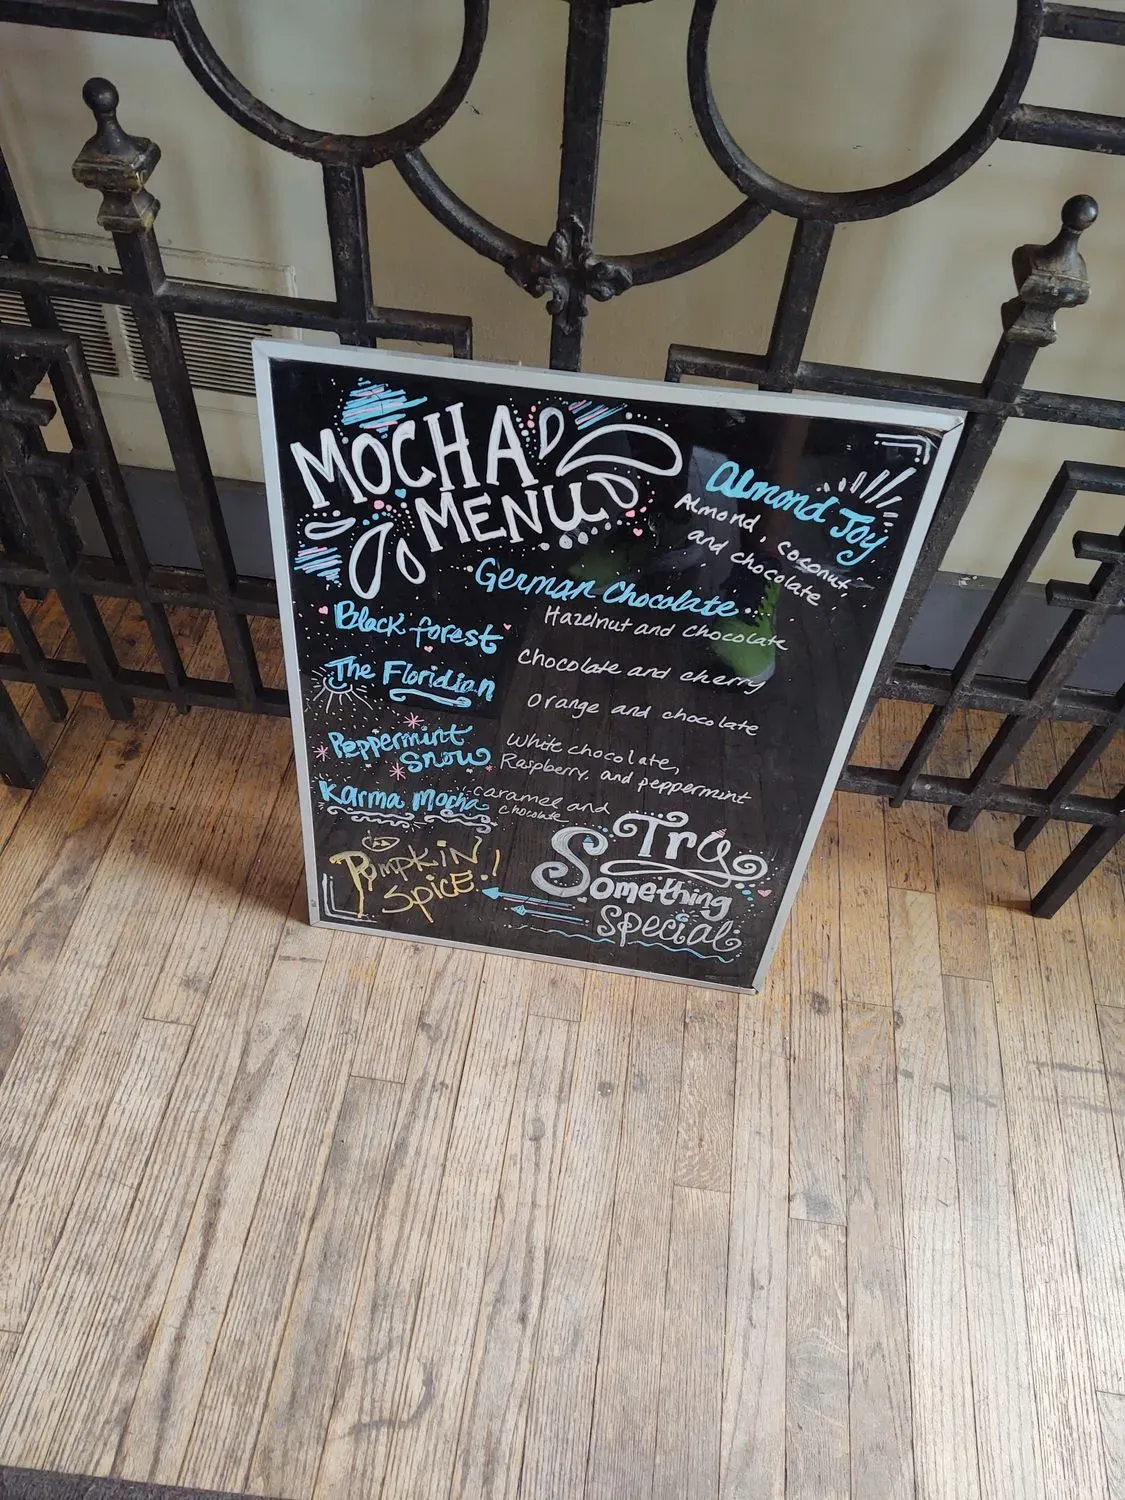 MOCHA
MENU
Almond Joy
Almond, coconut,
and chocolate
German Chocolate
Hazelnut and Chocolate
Black forest
chocolate and cherry
The Floridian
Orange and chocolate
Peppermint
Snow
White chocolate,
Raspberry, and peppermint
Karma Mocha
caramel and
chocolate
Pumpkin
Spice!
Try
Something
Special